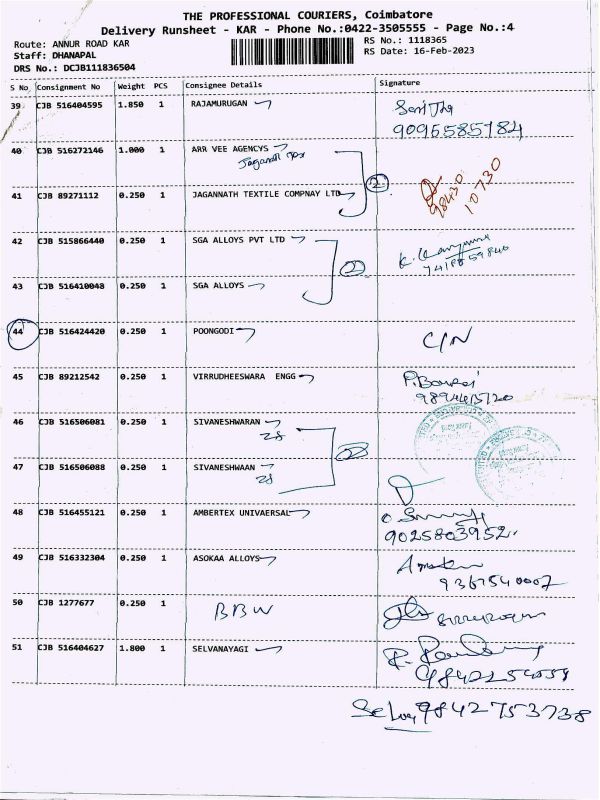 THE PROFESSIONAL COURIERS, Coimbatore
Delivery Runsheet - KAR - Phone No.:0422-3505555 - Page No.:4
Route: ANNUR ROAD KAR
Staff: DHANAPAL
DRS No.: DCJB111836504
RS No.: 1118365
RS Date: 16-Feb-2023
S No Consignment No Weight PCS Consignee Details Signature
39 CJB 516404595 1.850 1 RAJAMURUGAN
9095585784
40 CJB 516272146 1.000 1 ARR VEE AGENCYS
2
41 CJB 89271112 0.250 1 JAGANNATH TEXTILE COMPNAY LTD
98430
10730
42 CJB 515866440 0.250 1 SGA ALLOYS PVT LTD
2
43 CJB 516410048 0.250 1 SGA ALLOYS
44 CJB 516424420 0.250 1 POONGODI C/N
45 CJB 89212542 0.250 1 VIRRUDHEESWARA ENGG
46 CJB 516506081 0.250 1 SIVANESHWARAN
28
47 CJB 516506088 0.250 1 SIVANESHWAAN
28
48 CJB 516455121 0.250 1 AMBERTEX UNIVAERSAL
9025803952
49 CJB 516332304 0.250 1 ASOKAA ALLOYS
9367540007
50 CJB 1277677 0.250 1 BBW
51 CJB 516404627 1.800 1 SELVANAYAGI
9842753738